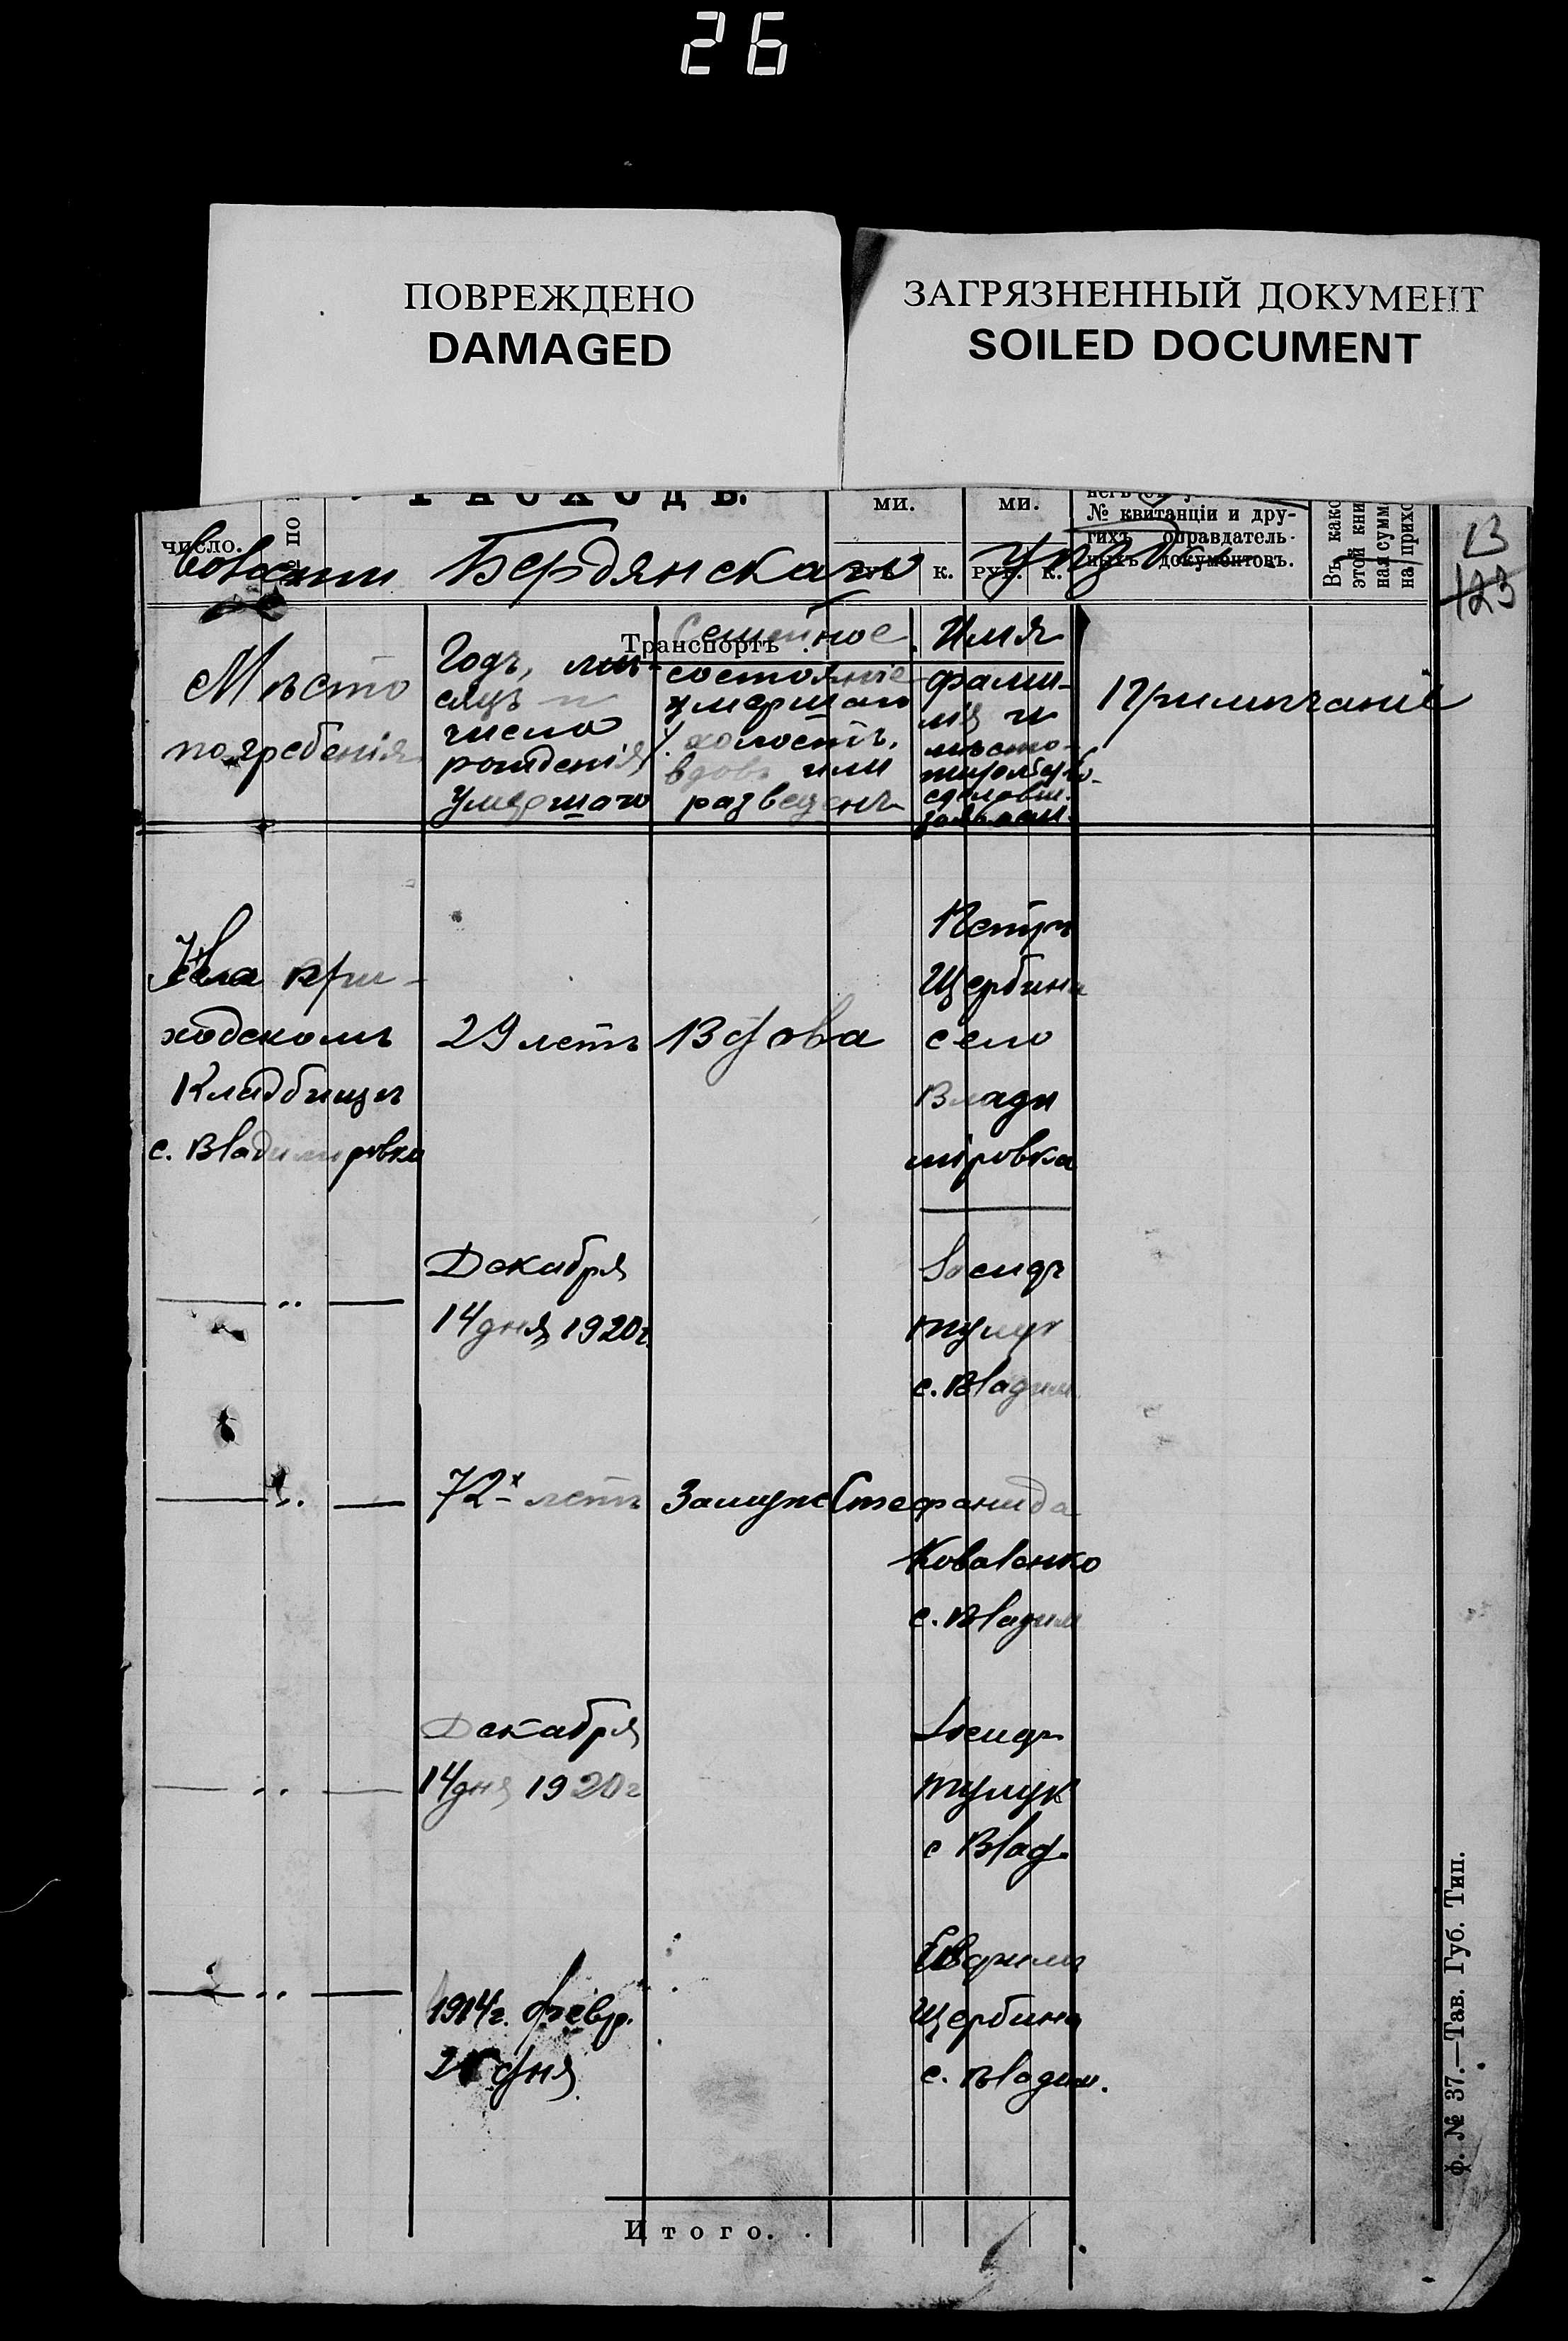 26
ПОВРЕЖДЕНО
DAMAGED
ЗАГРЯЗНЕННЫЙ ДОКУМЕНТ
SOILED DOCUMENT
РАСХОДЪ.
ми.
ми.
№ квитанціи и дру-
гихъ оправдатель-
ныхъ документовъ.
число.
по
к.
руб.
к.
Въ како
этой кни
ная сумм
на прихо
13
123
Бердянскаго уѣзда
Транспортъ
Мѣсто
погребенія
Годъ, мѣ-
сяцъ и
число
рожденія
умершаго
Семейное
состояніе
умершаго
холостъ,
вдовъ или
разведенъ
Имя
фами-
лія и
мѣсто-
Примѣчаніе
На при-
ходскомъ
Кладбищѣ
с. Владимировка
29 летъ
Вдова
Петръ
Щербина
село
Влади
міровка
— „ —
Декабря
14 дня 1920г.
с. Владим.
— „ —
72-х летъ
Замуж
Стефанида
Коваленко
с. Владим
— „ —
Декабря
14 дня 1920г
с Влад.
— „ —
1914г. февр.
дня
Щербина
с. Владим.
Итого.
ф. № 37.—Тав. Губ. Тип.